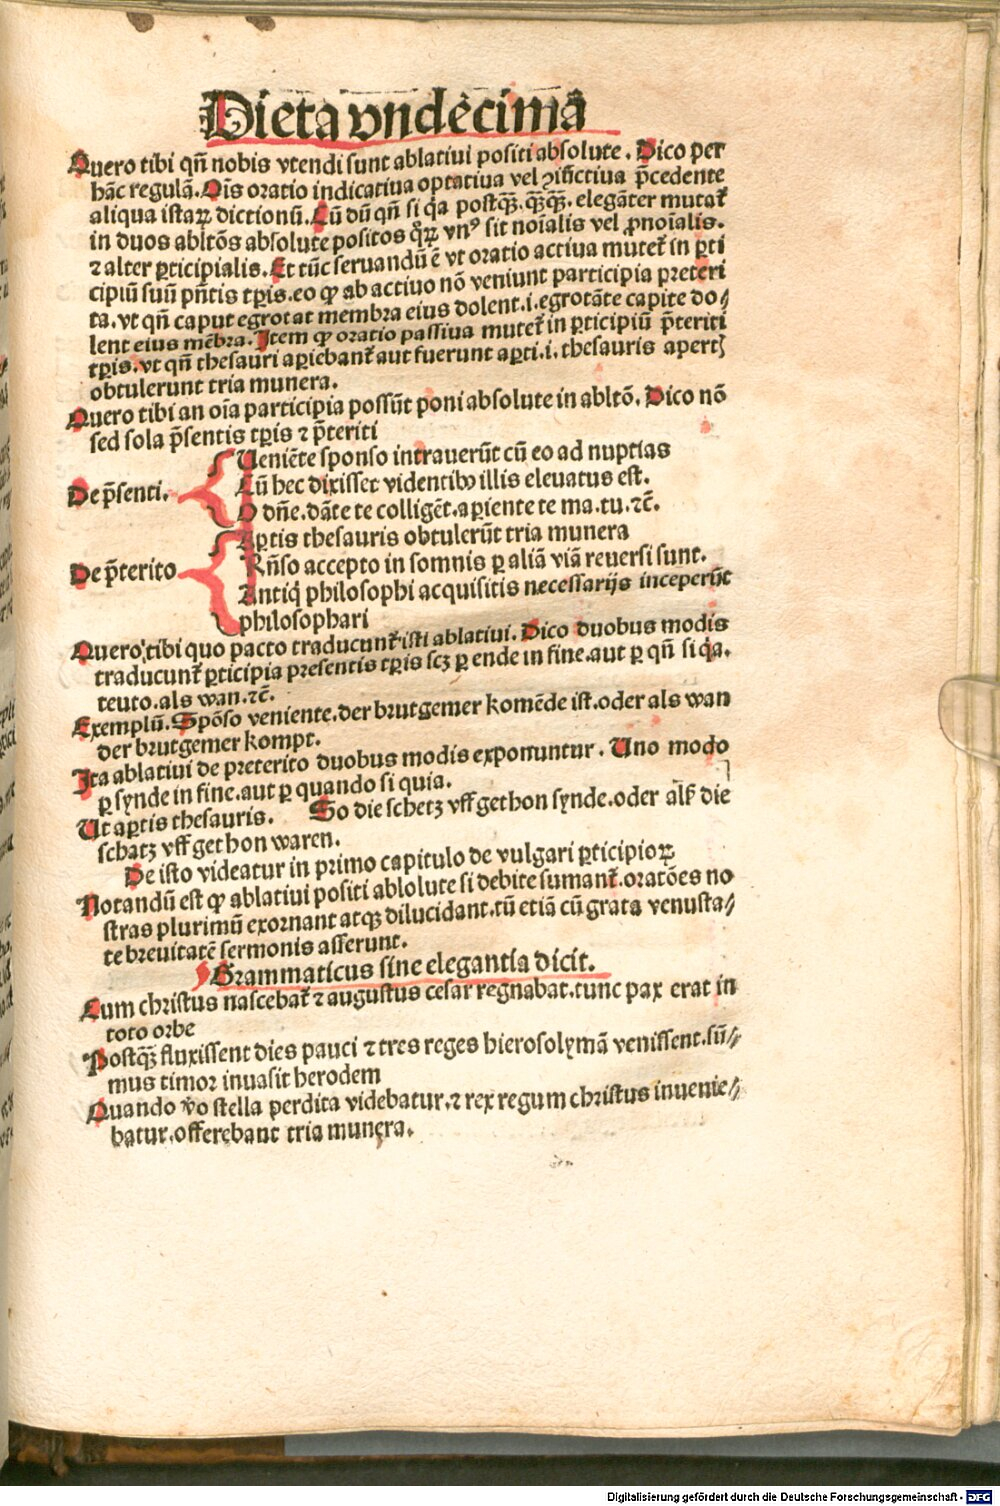 Dieta vndecima
Quero tibi qñ nobis vtendi sunt ablatiui positi absolute. Dico per
hãc regulã. Oĩs oratio indicatiua optatiua vel ꝯiũctiua p̃cedente
aliqua istaꝝ dictionũ. Cũ dũ qñ si q̇a postq̃ꝫ. q̃ꝫq̃ꝫ. elegãter mutat᷑
in duos abltõs absolute positos q̊ꝝ vnꝰ sit noĩalis vel ꝓnoĩalis.
⁊ alter ꝑticipialis. Et tũc seruandũ ẽ vt oratio actiua mutet᷑ in ꝑti
cipiũ suũ pñtis tꝑis. eo ꝙ ab actiuo nõ veniunt participia preteri
ta. vt qñ caput egrotat membra eius dolent .i. egrotãte capite do⸗
lent eius mẽbra. Item ꝙ oratio passiua mutet᷑ in ꝑticipiũ p̃teriti
tꝑis. vt qñ thesauri aꝑiebant᷑ aut fuerunt aꝑti .i. thesauris apertꝭ
obtulerunt tria munera.
Quero tibi an oĩa participia possũt poni absolute in abltõ. Dico nõ
sed sola p̃sentis tꝑis ⁊ p̃teriti
De p̃senti.
Ueniẽte sponso intrauerũt cũ eo ad nuptias
Cũ hec dixisset videntibꝰ illis eleuatus est.
O dñe. dãte te colligẽt. aꝑiente te ma. tu. ⁊c̃.
De p̃terito
Aꝑtis thesauris obtulerũt tria munera
Rñso accepto in somnis ꝑ aliã viã reuersi sunt.
Antiq̇ philosophi acquisitis necessarijs inceperũt
philosophari
Quero tibi quo pacto traducunt᷑ isti ablatiui. Dico duobus modis
traducunt᷑ ꝑticipia presentis tꝑis scꝫ ꝑ ende in fine. aut ꝑ qñ si q̇a.
teuto. als wan. ⁊c̃.
Exemplũ. Spõso veniente. der brutgemer komẽde ist. oder als wan
der brutgemer kompt.
Ita ablatiui de preterito duobus modis exponuntur. Uno modo
ꝑ synde in fine. aut ꝑ quando si quia.
Ut aꝑtis thesauris. So die schetz vff gethon synde. oder alß die
schatz vff gethon waren.
De isto videatur in primo capitulo de vulgari ꝑticipioꝝ
Notandũ est ꝙ ablatiui positi ablolute si debite sumant᷑. oratões no
stras plurimũ exornant atqꝫ dilucidant. tũ etiã cũ grata venusta⸗
te breuitatẽ sermonis afferunt.
Grammaticus sine elegantia dicit.
Cum christus nascebat᷑ ⁊ augustus cesar regnabat. tunc pax erat in
toto orbe
Postq̃ꝫ fluxissent dies pauci ⁊ tres reges hierosolymã venissent. sũ⸗
mus timor inuasit herodem
Quando v̊o stella perdita videbatur. ⁊ rex regum christus inuenie⸗
batur. offerebant tria munera.
Digitalisierung gefördert durch die Deutsche Forschungsgemeinschaft - DFG